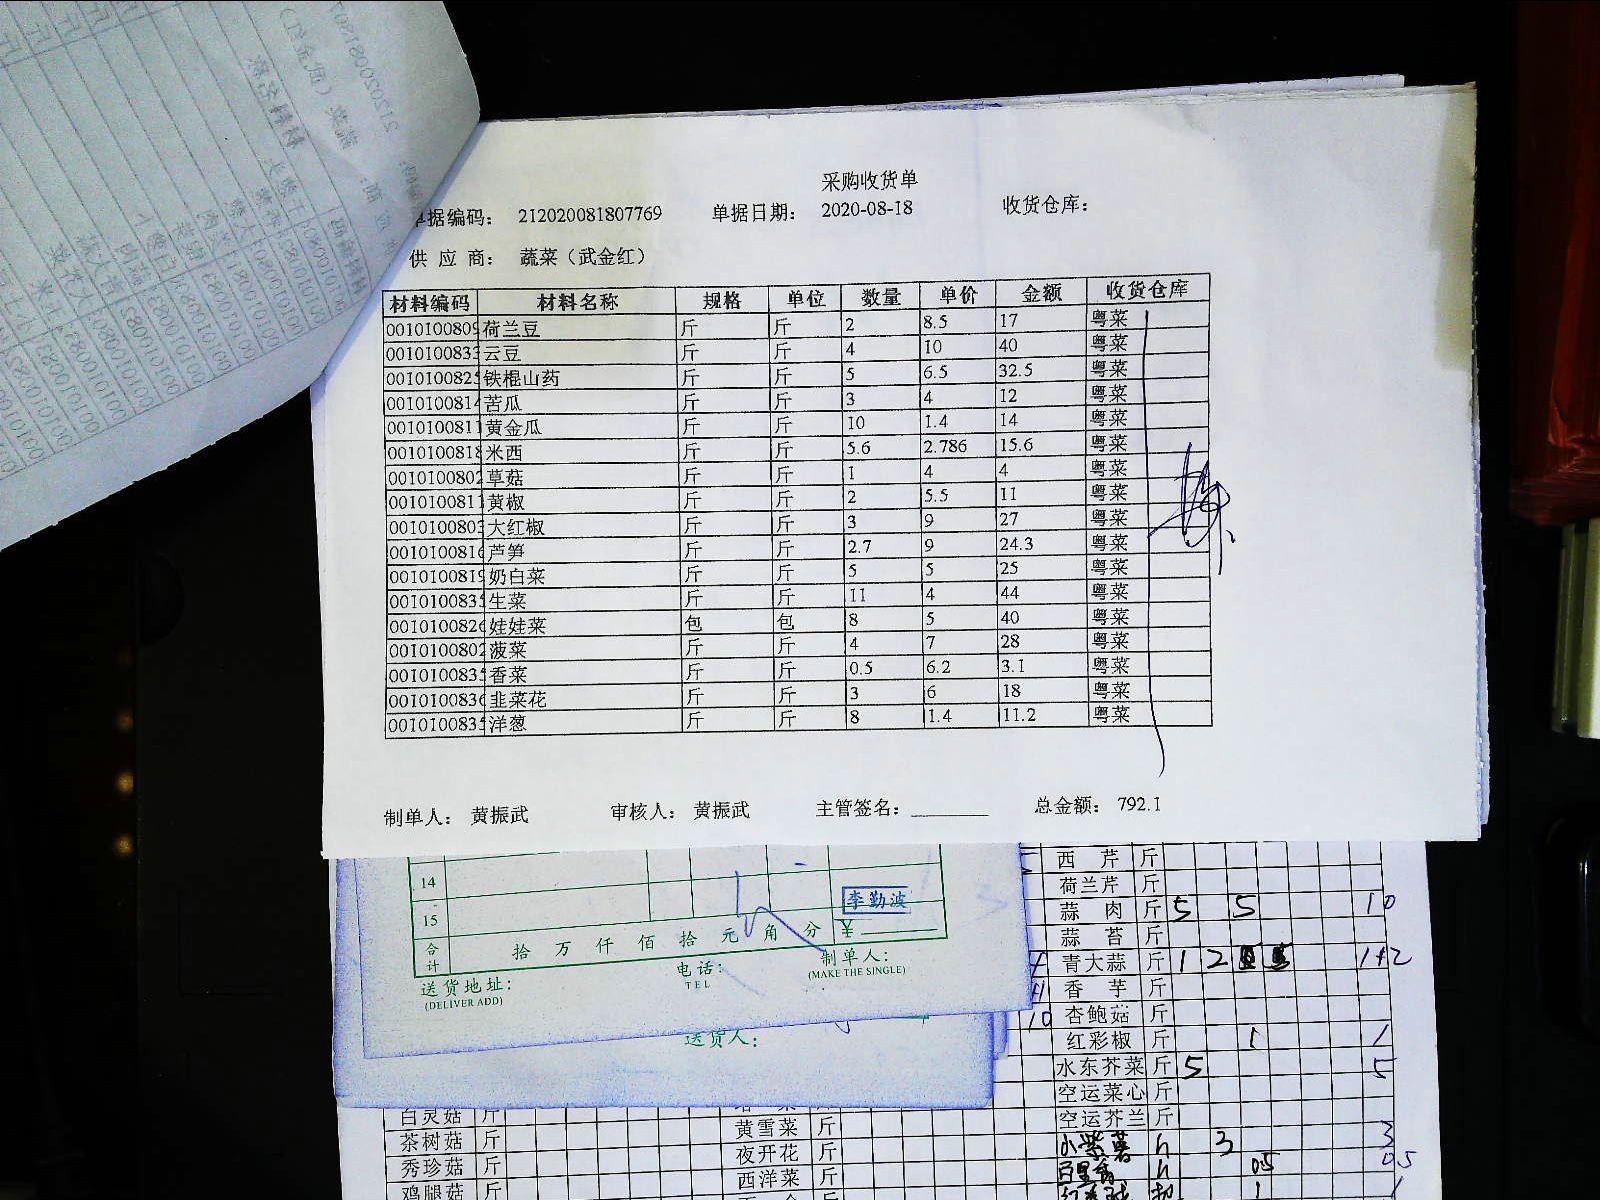 采购收货单
单据编码： 212020081807769 单据日期： 2020-08-18 收货仓库：
供 应 商： 蔬菜（武金红）
材料编码 材料名称 规格 单位 数量 单价 金额 收货仓库
0010100809 荷兰豆 斤 斤 2 8.5 17 粤菜
0010100833 云豆 斤 斤 4 10 40 粤菜
0010100825 铁棍山药 斤 斤 5 6.5 32.5 粤菜
0010100814 苦瓜 斤 斤 3 4 12 粤菜
0010100811 黄金瓜 斤 斤 10 1.4 14 粤菜
0010100818 米西 斤 斤 5.6 2.786 15.6 粤菜
0010100802 草菇 斤 斤 1 4 4 粤菜
0010100811 黄椒 斤 斤 2 5.5 11 粤菜
0010100803 大红椒 斤 斤 3 9 27 粤菜
0010100816 芦笋 斤 斤 2.7 9 24.3 粤菜
0010100819 奶白菜 斤 斤 5 5 25 粤菜
0010100835 生菜 斤 斤 11 4 44 粤菜
0010100826 娃娃菜 包 包 8 5 40 粤菜
0010100802 菠菜 斤 斤 4 7 28 粤菜
0010100835 香菜 斤 斤 0.5 6.2 3.1 粤菜
0010100836 韭菜花 斤 斤 3 6 18 粤菜
0010100835 洋葱 斤 斤 8 1.4 11.2 粤菜
制单人： 黄振武 审核人： 黄振武 主管签名： 总金额： 792.1
14
15
李勤波
合计 拾 万 仟 佰 拾 元 角 分 ￥
送货地址： 电话： 制单人：
(DELIVER ADD) TEL (MAKE THE SINGLE)
送货人：
西 芹 斤
荷兰芹 斤
蒜 肉 斤 5 5 10
蒜 苔 斤
青大蒜 斤 1 2 1+2
香 芋 斤
10 杏鲍菇 斤
红彩椒 斤 1 1
水东芥菜 斤 5 5
空运菜心 斤
空运芥兰 斤
小紫薯 3 3
05 05
白灵菇 斤
茶树菇 斤 黄雪菜 斤
秀珍菇 斤 夜开花 斤
鸡腿菇 斤 西洋菜 斤